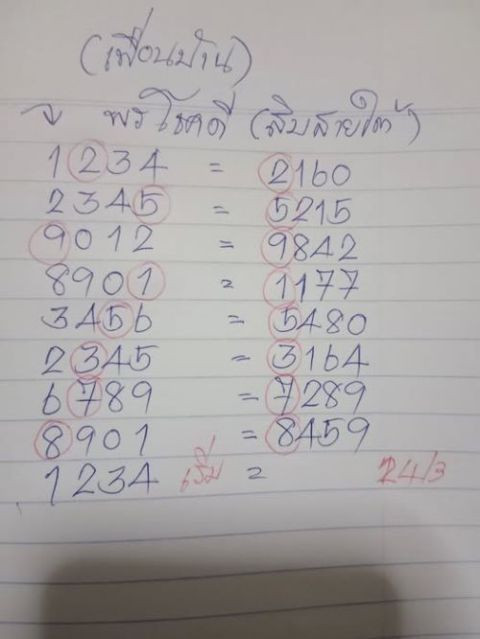 (เพื่อนบ้าน)
จ พรโชคดี (สิบสายใต้)
1234 = 2160
2345 = 5215
9012 = 9842
8901 = 1177
3456 = 5480
2345 = 3164
6789 = 7289
8901 = 8459
1234 เริ่ม = 24/3